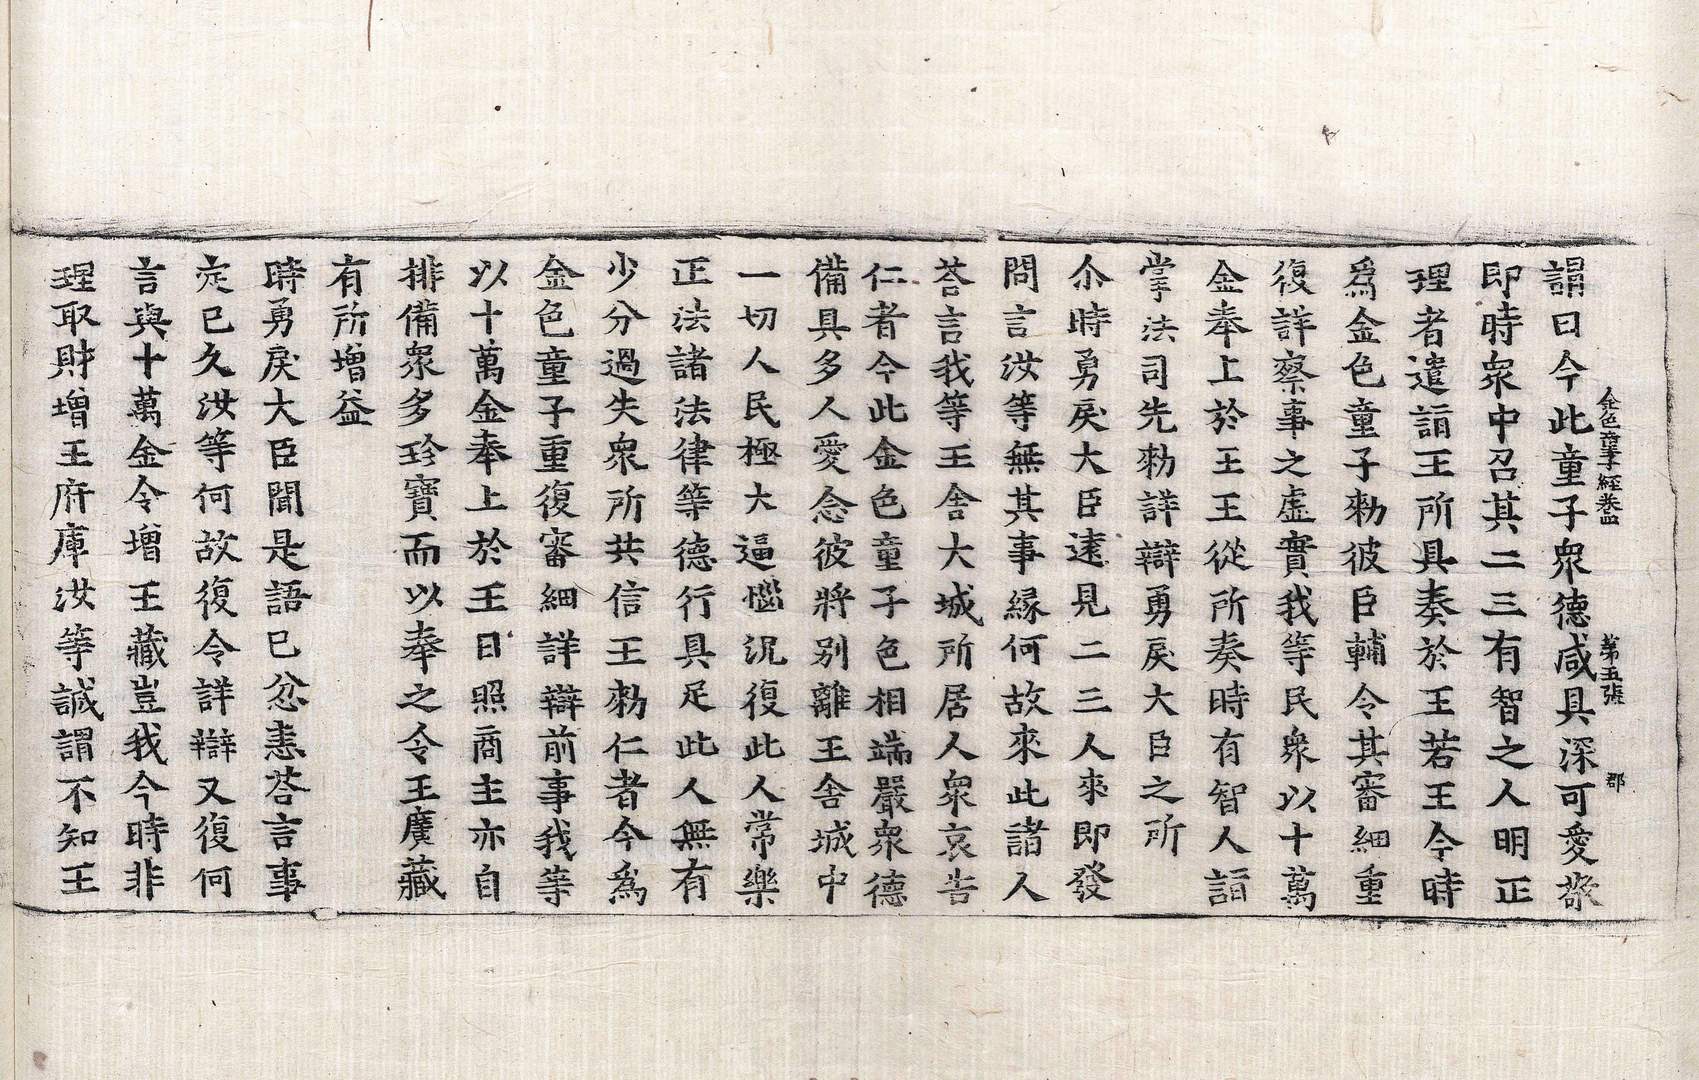 金色童子經卷四　第五張　郡
謂曰今此童子衆德咸具深可愛敬
即時衆中召其二三有智之人明正
理者遣詣王所具奏於王若王今時
爲金色童子勑彼臣輔令其審細重
復詳察事之虛實我等民衆以十萬
金奉上於王王從所奏時有智人詣
掌法司先勑詳辯勇戾大臣之所
尒時勇戾大臣遠見二三人來即發
問言汝等無其事緣何故來此諸人
荅言我等王舍大城所居人衆哀告
仁者今此金色童子色相端嚴衆德
備具多人愛念彼將別離王舍城中
一切人民極大逼惱沉復此人常樂
正法諸法律等德行具足此人無有
少分過失衆所共信王勑仁者今爲
金色童子重復審細詳辯前事我等
以十萬金奉上於王日照商主亦自
排備衆多珍寶而以奉之令王廣藏
有所增益
時勇戾大臣聞是語已忿恚荅言事
㝎已久汝等何故復令詳辯又復何
言與十萬金令增王藏豈我今時非
理取財增王府庫汝等誠謂不知王